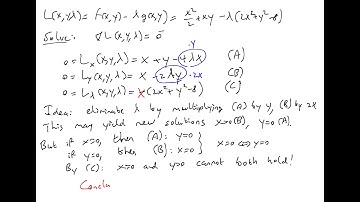 L(x,y,λ) = f(x,y) - λ g(x,y) = x²/2 + xy - λ(2x²+y²-8)
Solve: ∇L(x,y,λ) = 0
·y
0 = Lx(x,y,λ) = x + y - 4λx (A)
0 = Ly(x,y,λ) = x - 2λy ·2x (B)
0 = Lλ(x,y,λ) = x (2x²+y²-8) (C)
Idea: eliminate λ by multiplying (A) by y, (B) by 2x
This may yield new solutions x=0(B), y=0(A).
But if x=0, then (A): y=0
if y=0, then (B): x=0 } x=0 ⇔ y=0
By (C): x=0 and y=0 cannot both hold!
Conclu